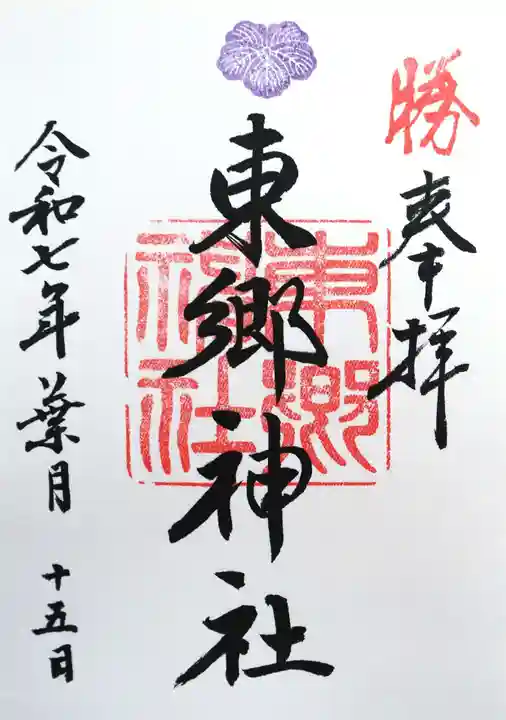 勝
奉拝
東郷神社
東郷神社
令和七年葉月十五日